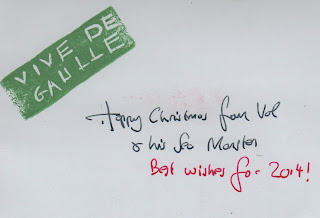 VIVE DE
GAULLE
Happy Christmas from Vol
& his Sea Monster
Best wishes for 2014!